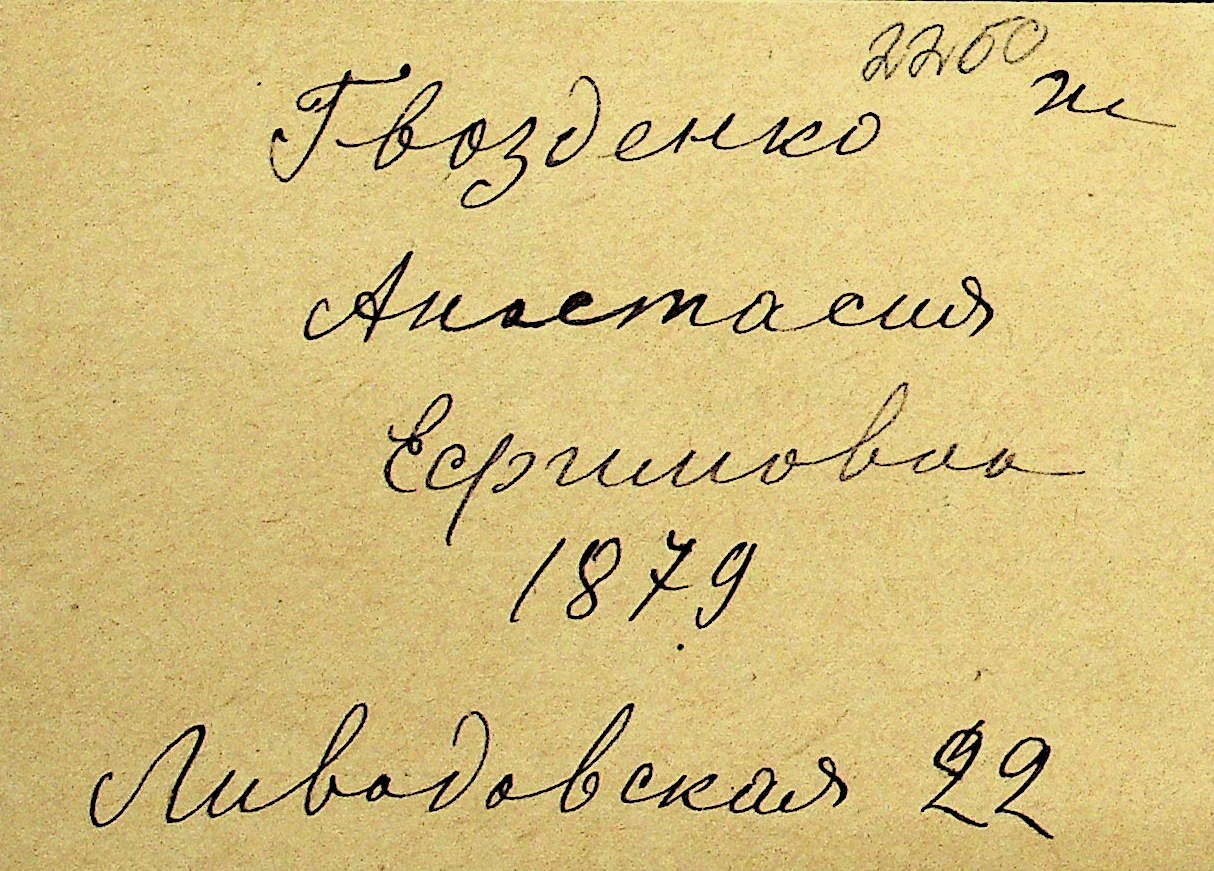 2250
Гвозденко ж
Анастасия
Ефимовна
1879
Ливадовская 22